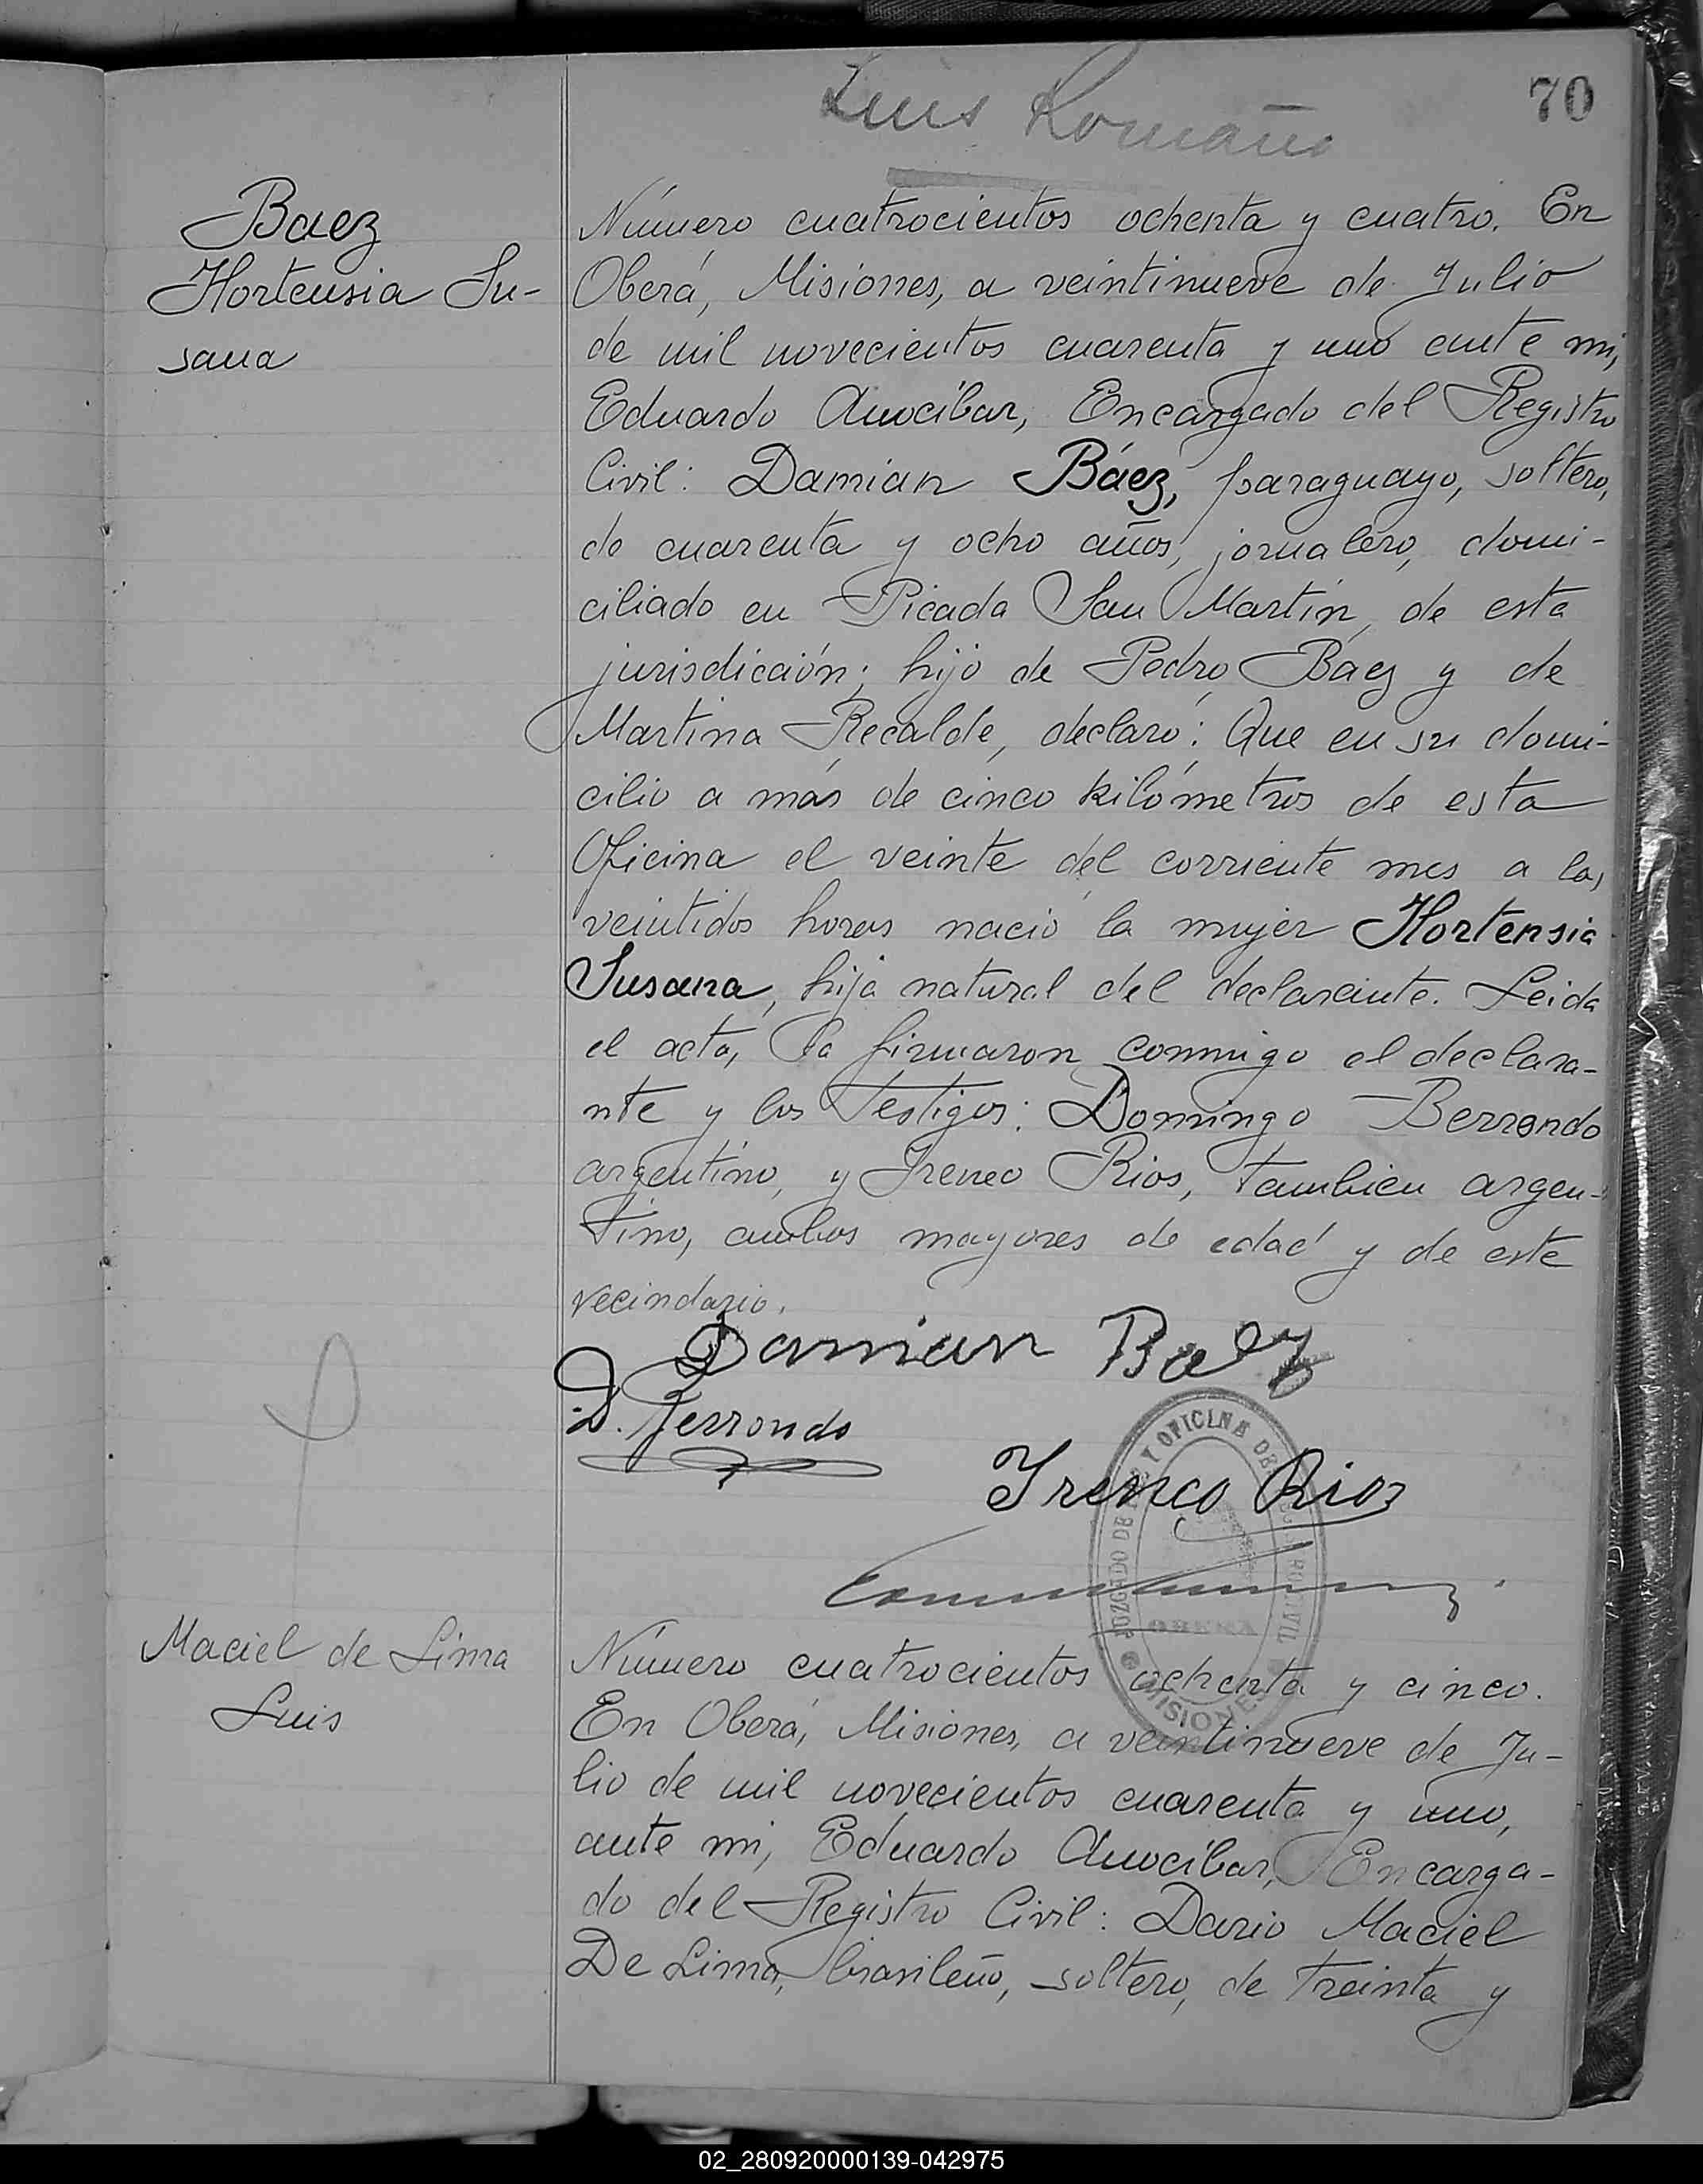 Luis Romaño
70
Baez
Hortensia Su-
sana
Número cuatrocientos ochenta y cuatro. En
Oberá, Misiones, a veintinueve de Julio
de mil novecientos cuarenta y uno ante mi,
Eduardo Amocibar, Encargado del Registro
Civil: Damian Báez, paraguayo, soltero,
de cuarenta y ocho años, jornalero, domi-
ciliado en Picada San Martín, de esta
jurisdicción; hijo de Pedro Báez y de
Martina Recalde, declaró: Que en su domi-
cilio a más de cinco kilómetros de esta
Oficina el veinte del corriente mes a las
veintidos horas nació la mujer Hortensia
Susana, hija natural del declarante. Leida
el acta, la firmaron conmigo el declara-
nte y los testigos: Domingo Berrondo
argentino, y Ireneo Rios, tambien argen-
tino, ambos mayores de edad y de este
vecindario.
Damian Baez
D. Berrondo
Ireneo Rios
JUZGADO DE Y OFICINA DE CIVIL
MISIONES
Maciel de Lima
Luis
Número cuatrocientos ochenta y cinco.
En Oberá, Misiones, a veintinueve de Ju-
lio de mil novecientos cuarenta y uno,
ante mi, Eduardo Amocibar, Encarga-
do del Registro Civil: Dario Maciel
De Lima, brasileño, soltero, de treinta y
02_280920000139-042975